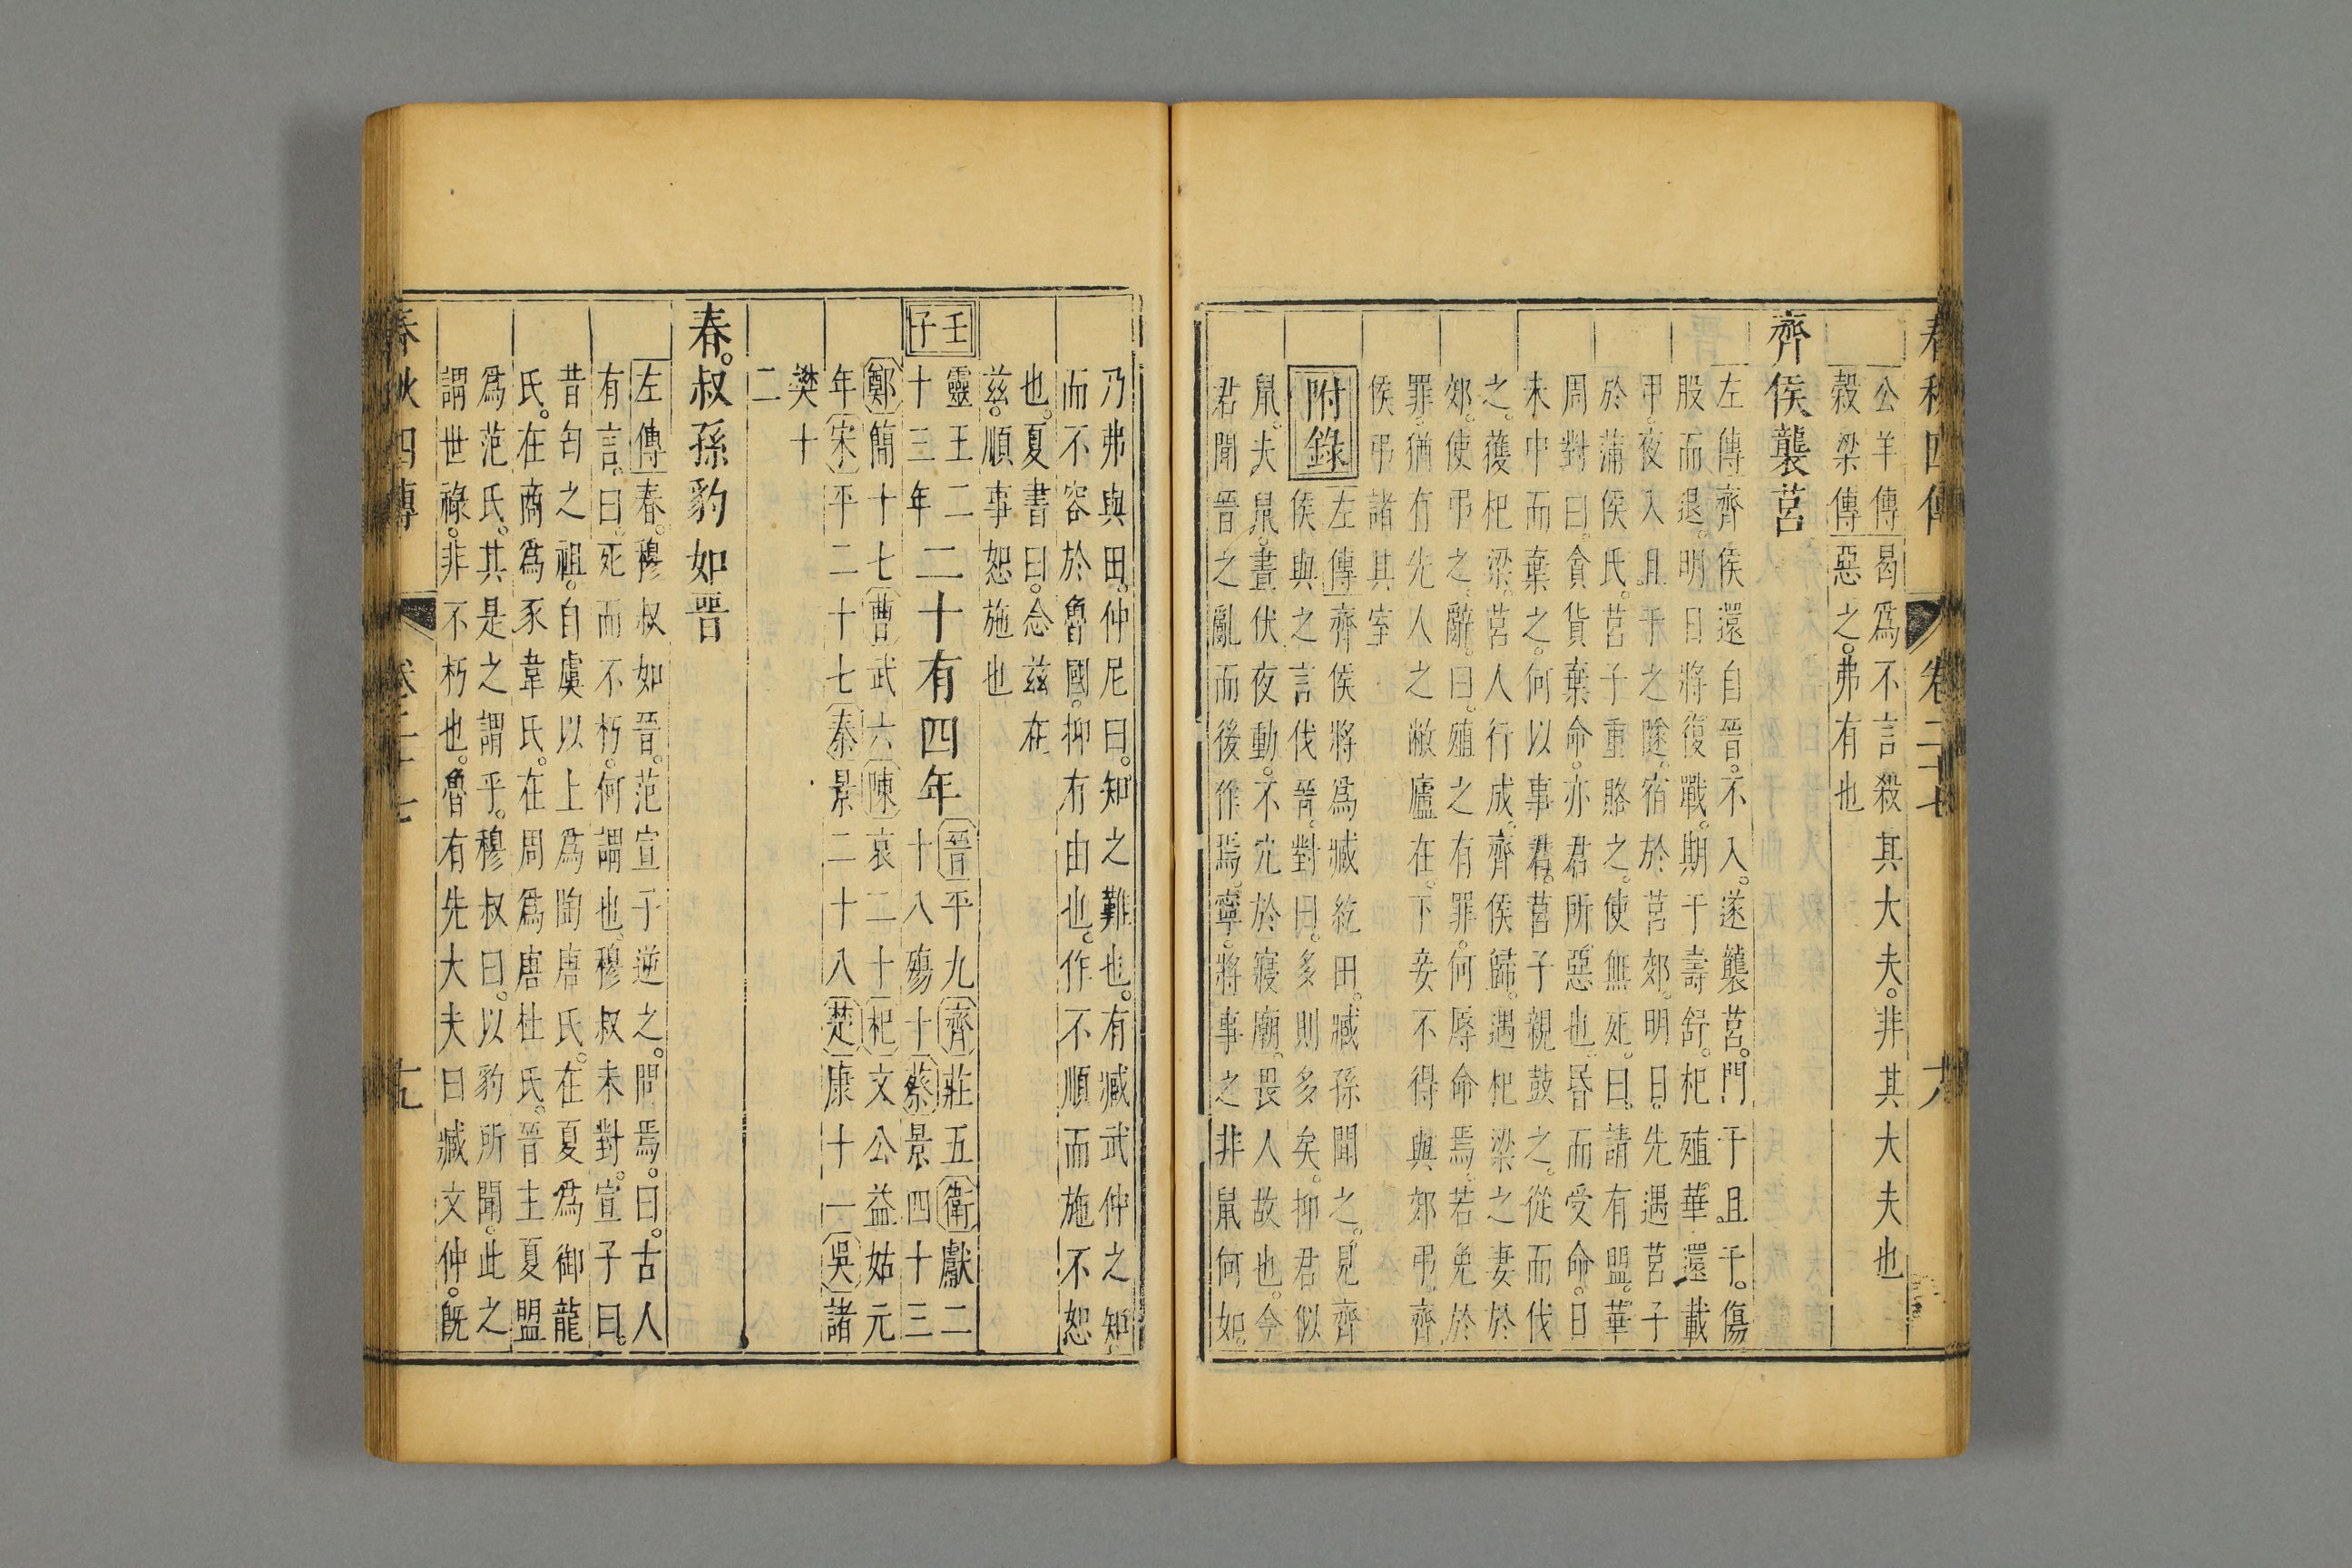 春秋四傳 卷二十七
公羊傳曷爲不言殺其大夫。非其大夫也
穀梁傳惡之。弗有也
齊侯襲莒
左傳齊侯還自晉。不入。遂襲莒。門于且于。傷
股而退。明日將復戰。期于壽舒。杞殖。華還載
甲。夜入且于之隧。宿於莒郊。明日。先遇莒子
於蒲侯氏。莒子重賂之。使無死。曰。請有盟。華
周對曰。貪貨棄命。亦君所惡也。昏而受命。日
未中而棄之。何以事君。莒子親鼓之。從而伐
之。獲杞梁。莒人行成。齊侯歸。遇杞梁之妻於
郊。使弔之。辭。曰。殖之有罪。何辱命焉。若免於
罪。猶有先人之敝廬在。下妾不得與郊弔。齊
侯弔諸其室
附錄左傳齊侯將爲臧紇田。臧孫聞之。見齊
侯與之言伐晉。對曰。多則多矣。抑君似
鼠。夫鼠。晝伏夜動。不穴於寢廟。畏人故也。今
君聞晉之亂而後作焉。寧。將事之。非鼠何如。
乃弗與田。仲尼曰。知之難也。有臧武仲之知
而不容於魯國。抑有由也。作不順而施不恕
也。夏書曰。念兹在
兹。順事恕施也
壬子
靈王二十三年二十有四年晉平九齊莊五衛獻二
十八殤十蔡景四十三
鄭簡十七曹武六陳哀二十杞文公益姑元
年宋平二十七秦景二十八楚康十一吳諸
樊十
二
春。叔孫豹如晉
左傳春。穆叔如晉。范宣子逆之。問焉。曰。古人
有言。曰。死而不朽。何謂也。穆叔未對。宣子曰。
昔匄之祖。自虞以上爲陶唐氏。在夏爲御龍
氏。在商爲豕韋氏。在周爲唐杜氏。晉主夏盟
爲范氏。其是之謂乎。穆叔曰。以豹所聞。此之
謂世祿。非不朽也。魯有先大夫曰臧文仲。既
春秋四傳 卷二十七